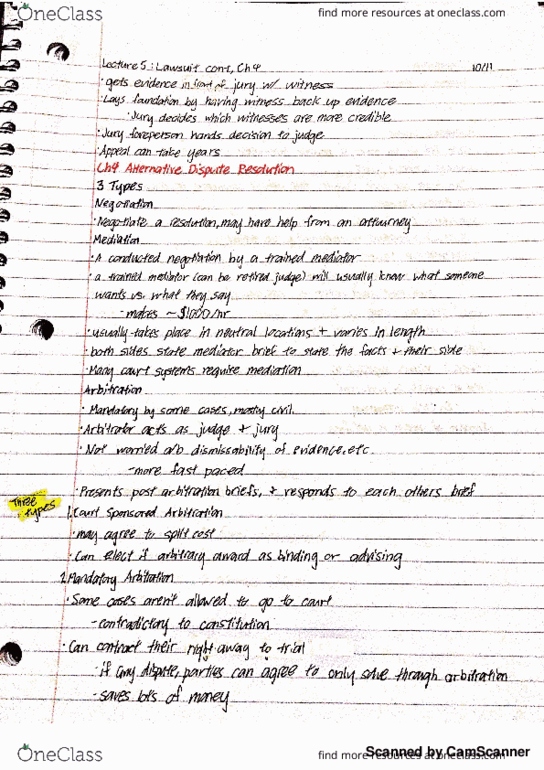 OneClass
find more resources at oneclass.com
Lecture 5: Lawsuit cont, Ch 4 10/11
· gets evidence in front of jury w/ witness
· Lays foundation by having witness back up evidence
· Jury decides which witnesses are more credible
· Jury foreperson hands decision to judge
· Appeal can take years
Ch4 Alternative Dispute Resolution
3 Types
Negotiation
· Negotiate a resolution, may have help from an attourney
Mediation
· A conducted negotiation by a trained mediator
· a trained mediator (can be retired judge) will usually know what someone
wants vs. what they say
- makes ~ $1000/hr
· usually takes place in neutral locations + varies in length
· both sides state mediator brief to state the facts + their side
· Many court systems require mediation
Arbitration
· Mandatory by some cases, mostly civil.
· Arbitrator acts as judge + jury
· Not worried a/b dismissability of evidence, etc.
- more fast paced
· Presents post arbitration briefs, + responds to each others brief
Three types
1. Court Sponsored Arbitration
· may agree to split cost
· Can elect if arbitrary award as binding or advising
2. Mandatory Arbitration
· Some cases aren't allowed to go to court
- contradictory to constitution
· Can contract their right away to trial
· if any dispute, parties can agree to only solve through arbitration
- saves lots of money
OneClass
find more resources at oneclass.com
Scanned by CamScanner